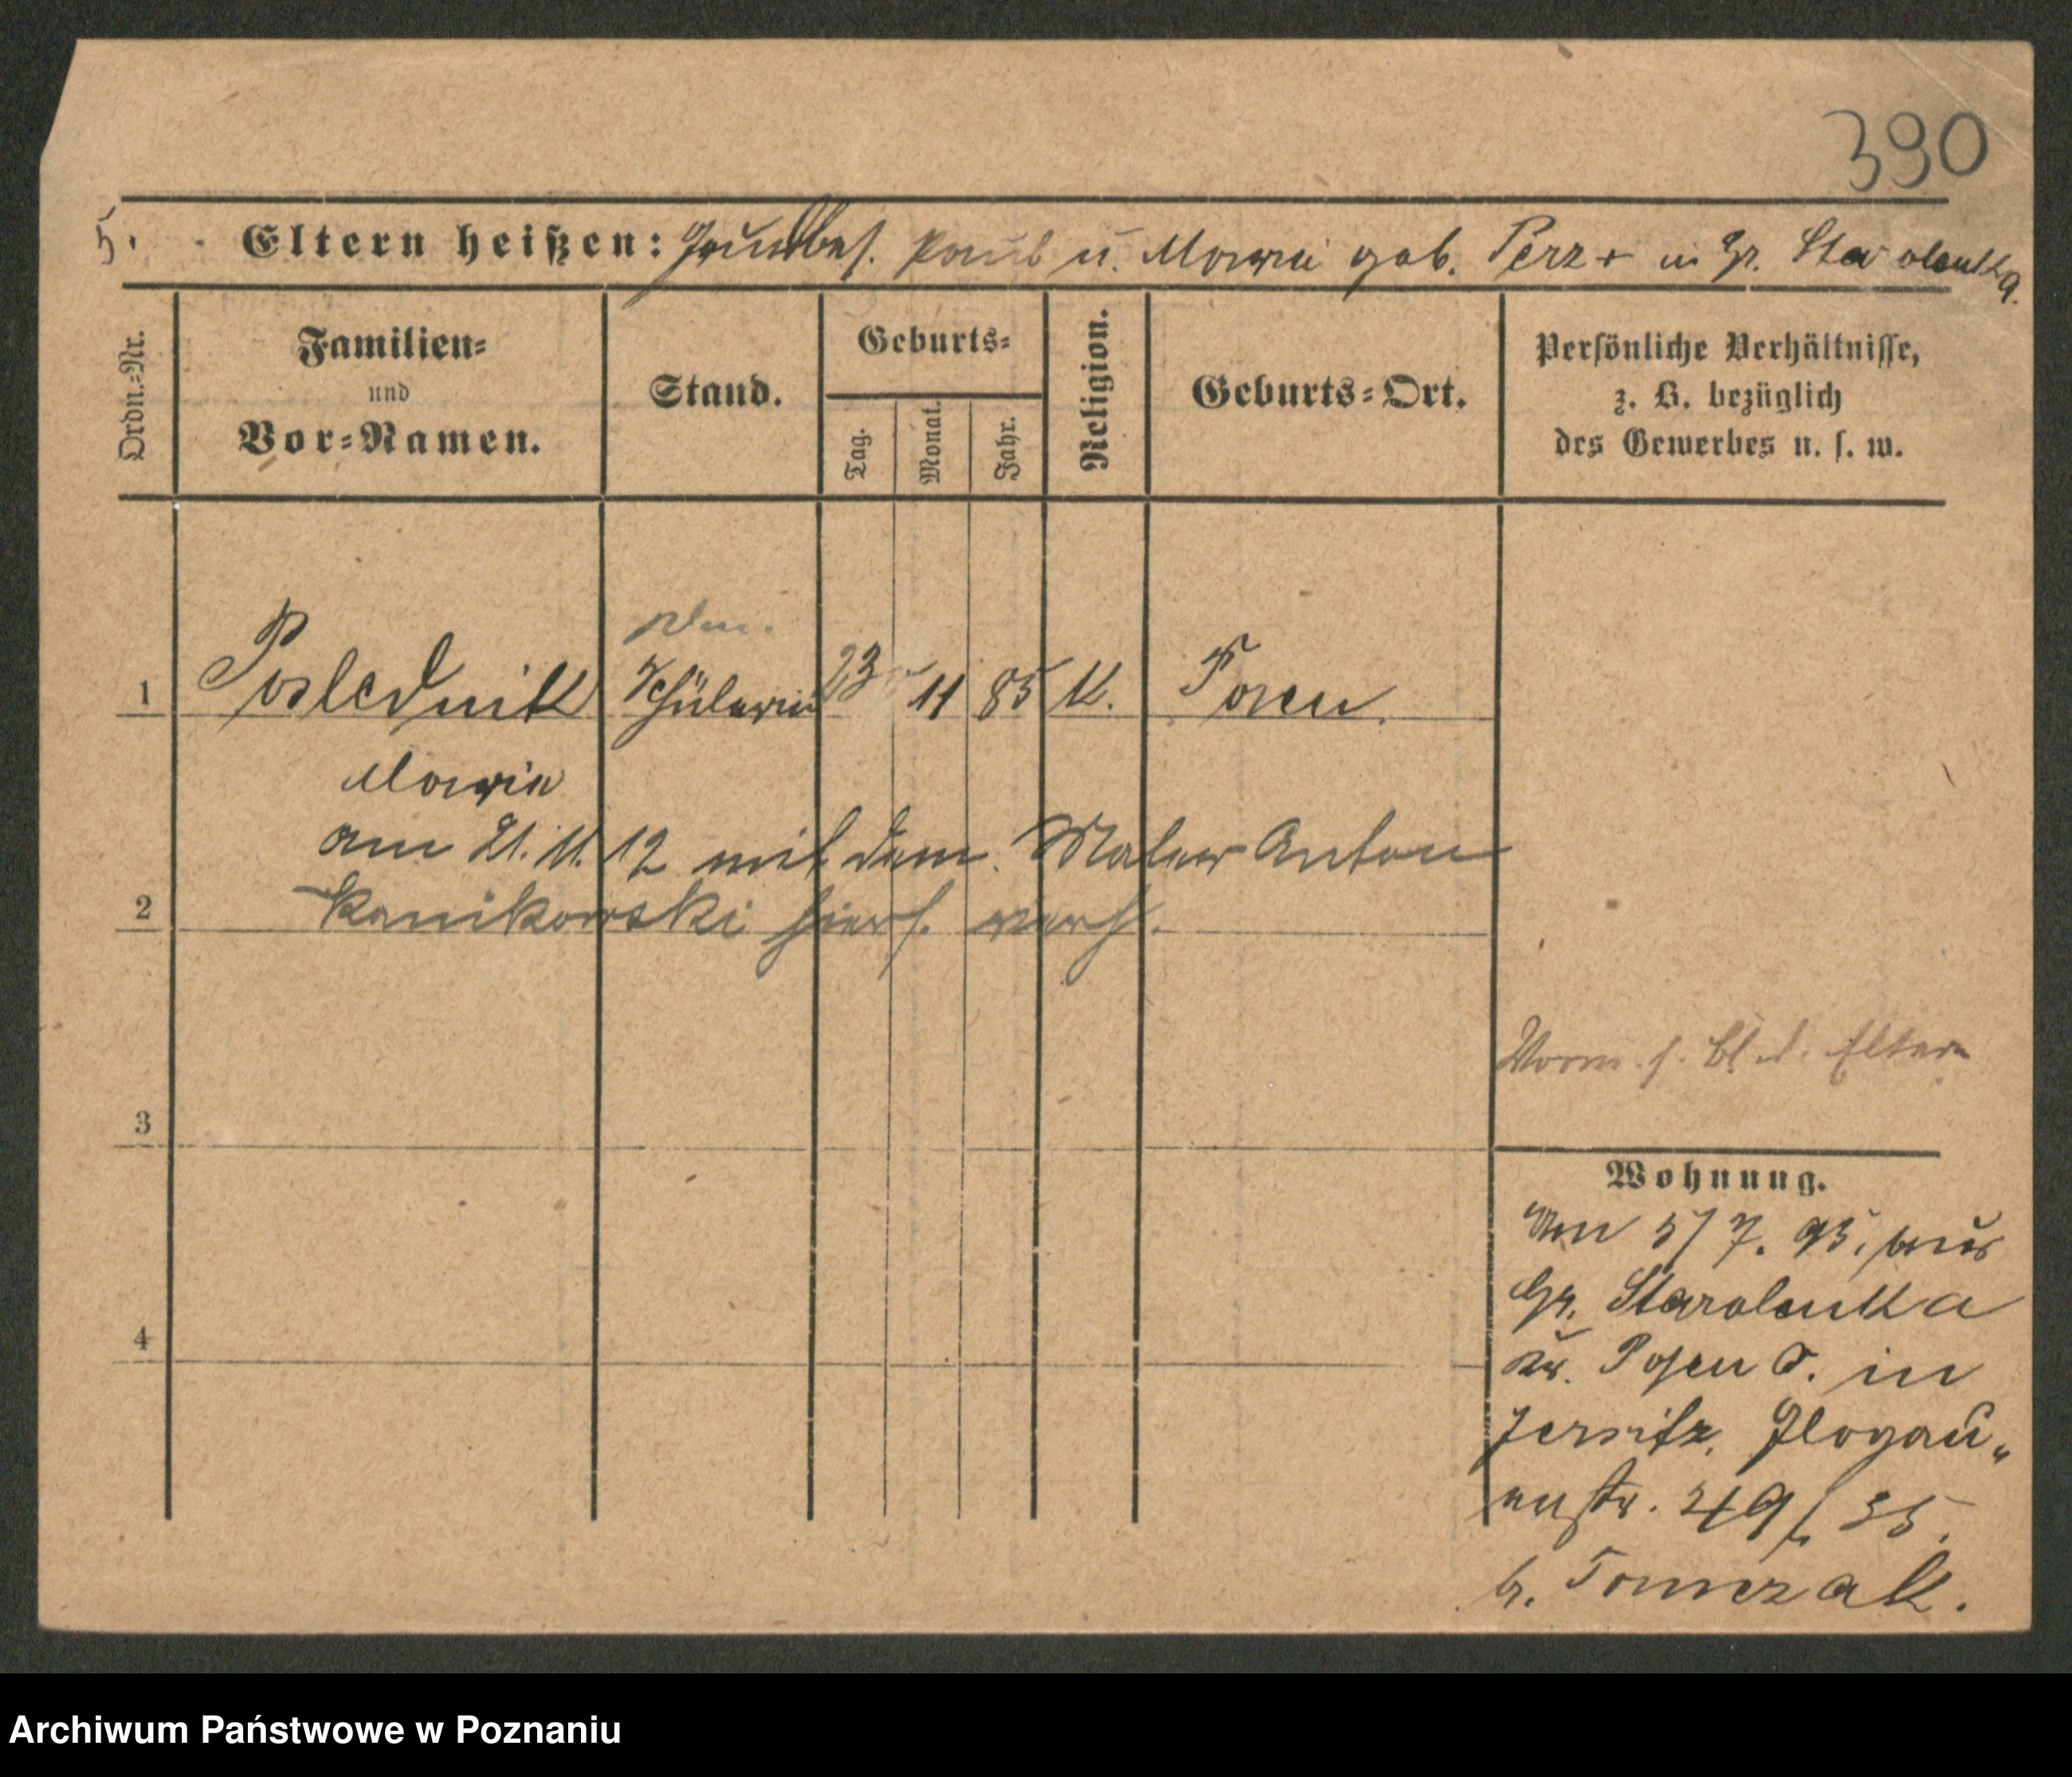 390
5. Eltern heißen: Grundbes. Paul u. Maria geb. Perz + in Gr. Starolenka.
Ordn.-Nr.
Familien-
und
Vor-Namen.
Stand.
Geburts-
Tag.
Monat.
Jahr.
Religion.
Geburts-Ort.
Persönliche Verhältnisse,
z. B. bezüglich
des Gewerbes u. s. w.
1 Poslednik Schülerin 23 11 85 K. Posen.
Maria
am 21.11.12 mit dem Maler Anton
2 Kanikowski hiers. verh.
Vorm. s. Bl. d. Eltern
3
Wohnung.
Am 5/7. 95. aus
Gr. Starolenka
Kr. Posen O. in
Jersitz, Glogau„
erstr. 49/35.
b. Tomczak.
4
Archiwum Państwowe w Poznaniu